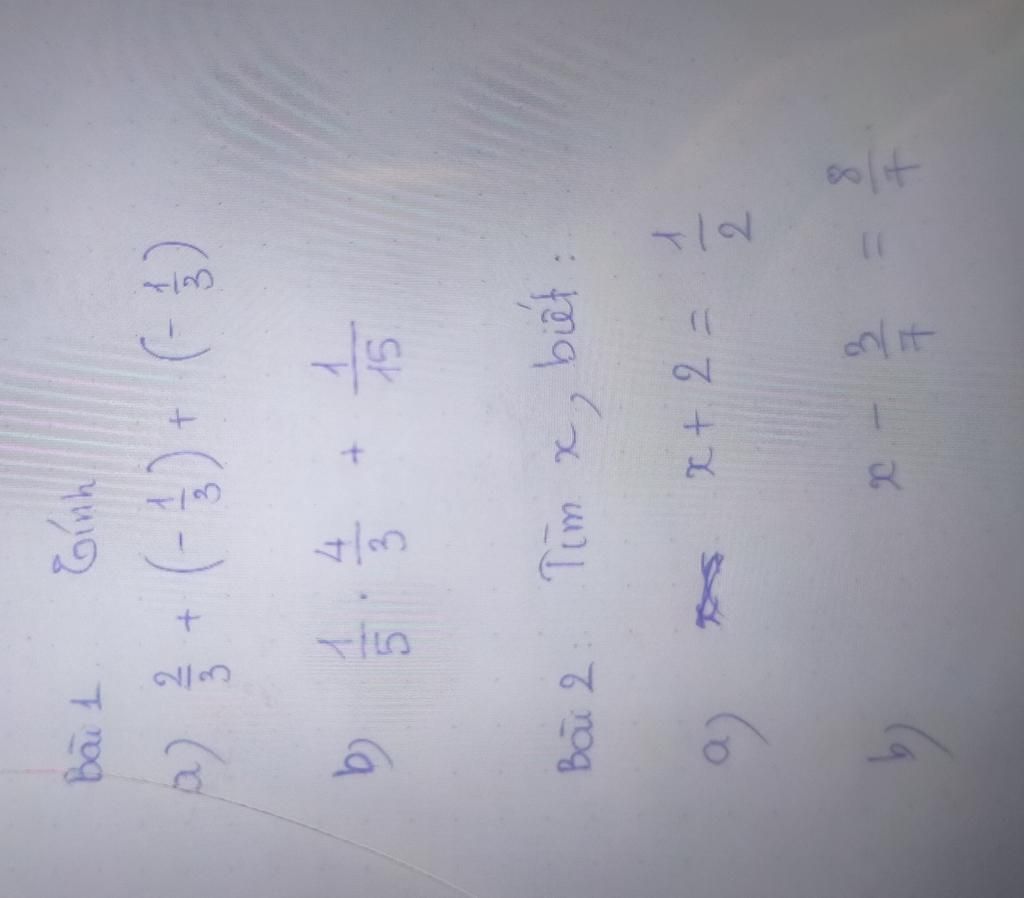 Bài 1 Tính
a) 2/3 + (-1/3) + (-1/3)
b) 1/5 . 4/3 + 1/15
Bài 2: Tìm x, biết:
a) x + 2 = 1/2
b) x - 3/7 = 8/7